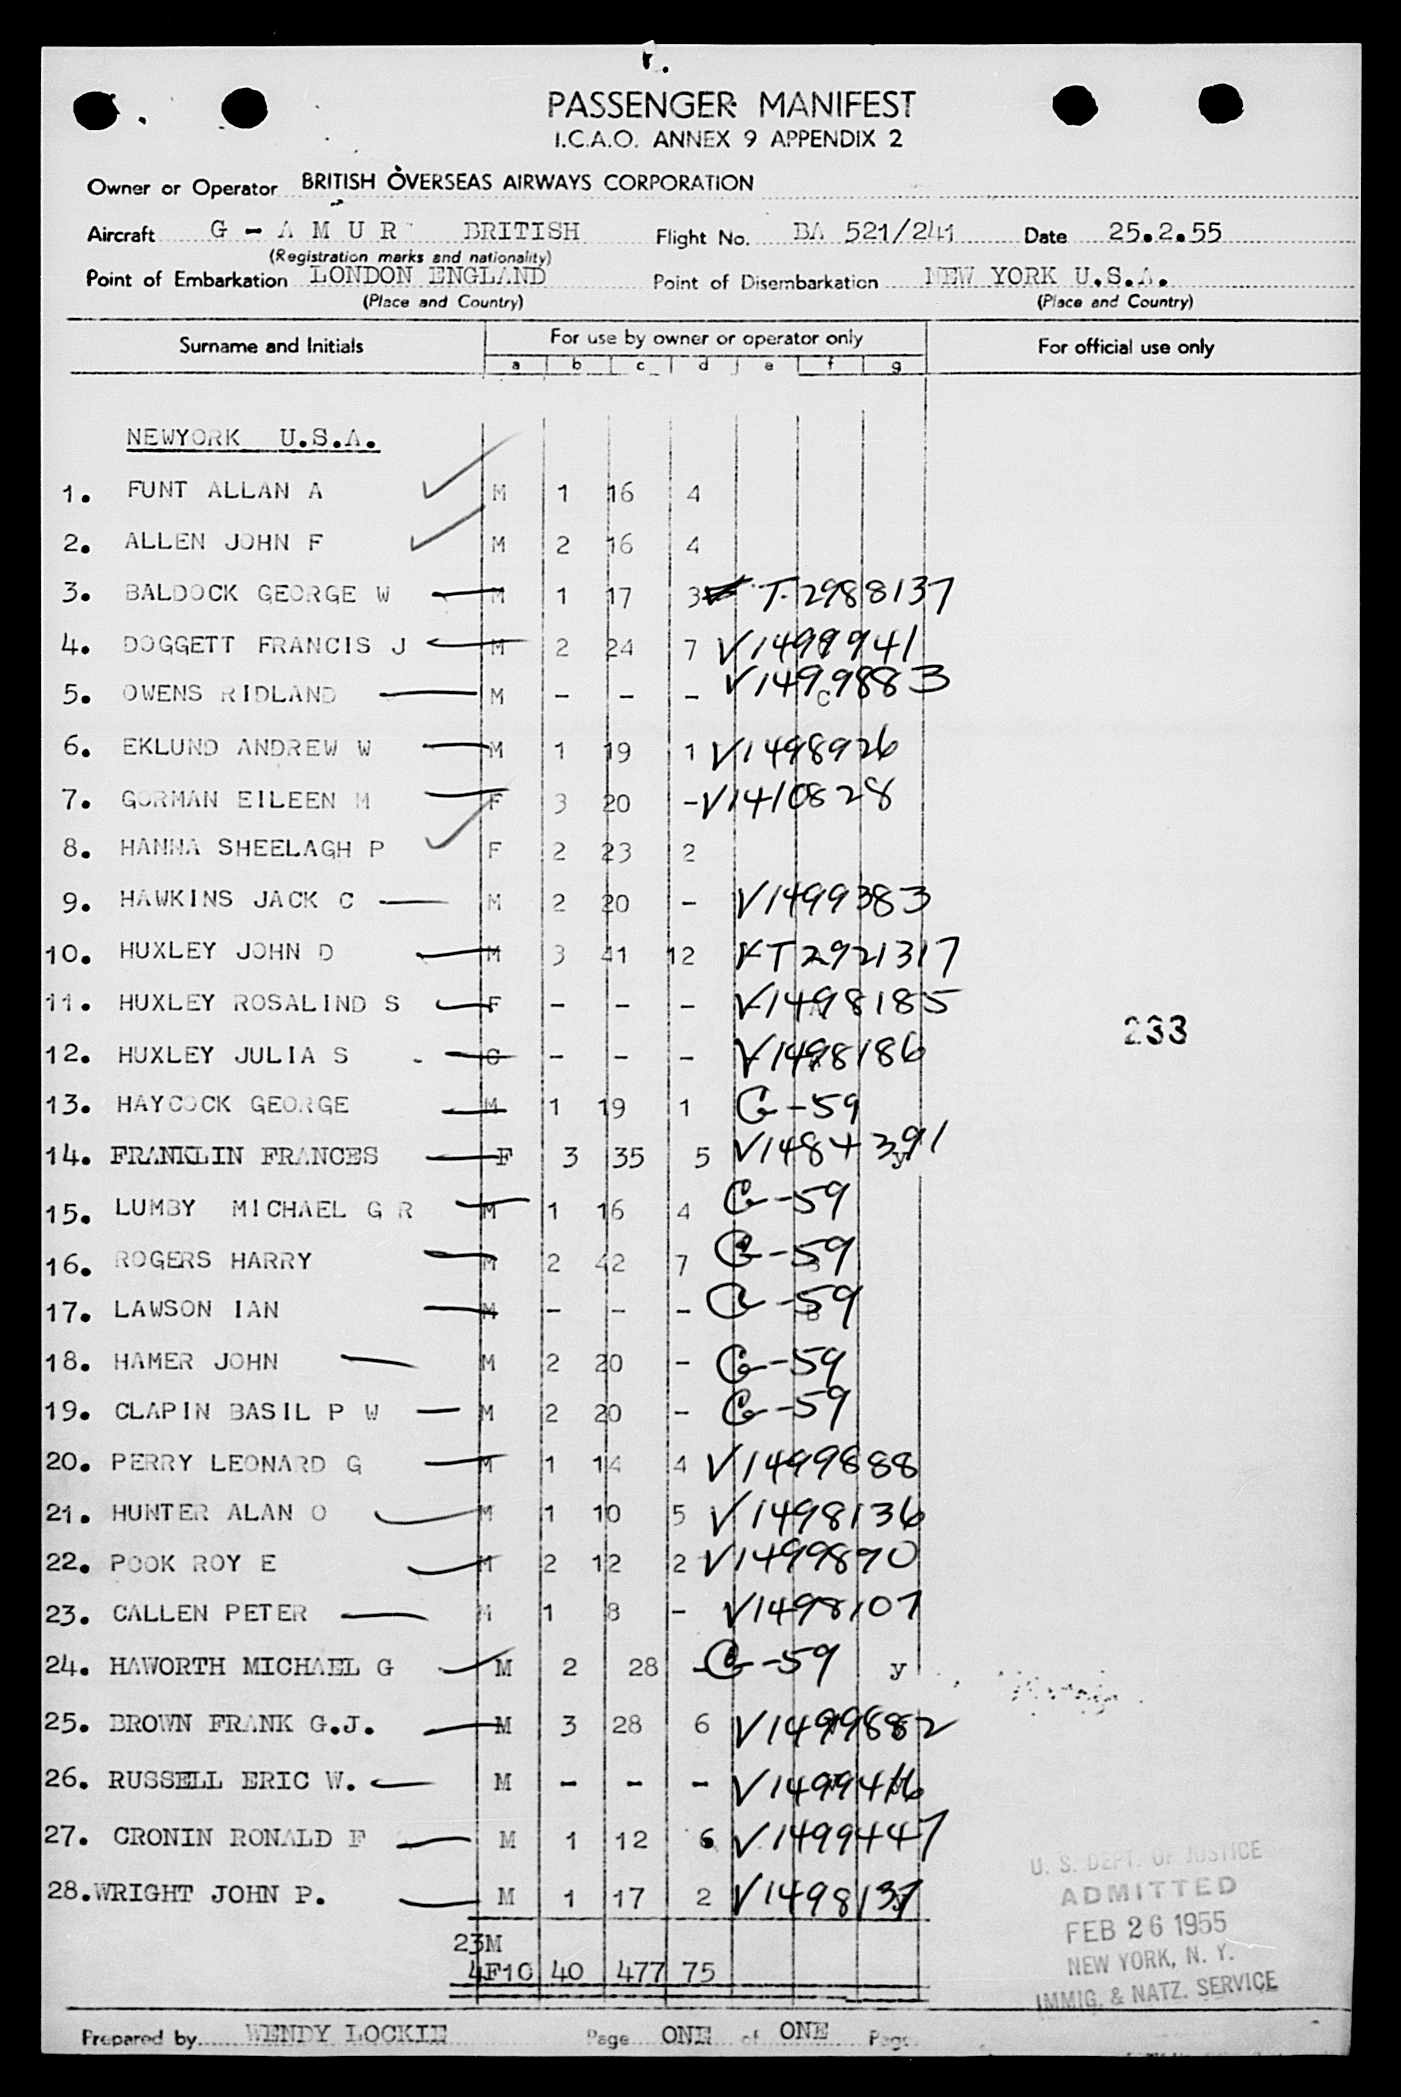 PASSENGER MANIFEST
I.C.A.O. ANNEX 9 APPENDIX 2
Owner or Operator BRITISH OVERSEAS AIRWAYS CORPORATION
Aircraft G - A M U R BRITISH Flight No. BA 521/241 Date 25.2.55
(Registration marks and nationality)
Point of Embarkation LONDON ENGLAND Point of Disembarkation NEW YORK U.S.A.
(Place and Country) (Place and Country)
Surname and Initials For use by owner or operator only For official use only
a b c d e f g
NEWYORK U.S.A.
1. FUNT ALLAN A M 1 16 4
2. ALLEN JOHN F M 2 16 4
3. BALDOCK GEORGE W M 1 17 3 T-2988137
4. DOGGETT FRANCIS J M 2 24 7 V1499941
5. OWENS RIDLAND M - - - V1499883 C
6. EKLUND ANDREW W M 1 19 1 V1498926
7. GORMAN EILEEN M F 3 20 - V1410828
8. HANNA SHEELAGH P F 2 23 2
9. HAWKINS JACK C M 2 20 - V1499383
10. HUXLEY JOHN D M 3 41 12 T2921317
11. HUXLEY ROSALIND S F - - - V1498185
12. HUXLEY JULIA S C - - - V1498186
233
13. HAYCOCK GEORGE M 1 19 1 G-59
14. FRANKLIN FRANCES F 3 35 5 V1484391 y
15. LUMBY MICHAEL G R M 1 16 4 G-59
16. ROGERS HARRY M 2 42 7 G-59
17. LAWSON IAN M - - - G-59
18. HAMER JOHN M 2 20 - G-59
19. CLAPIN BASIL P W M 2 20 - G-59
20. PERRY LEONARD G M 1 14 4 V1499888
21. HUNTER ALAN O M 1 10 5 V1498136
22. POOK ROY E M 2 12 2 V1499890
23. CALLEN PETER M 1 8 - V1498107
24. HAWORTH MICHAEL G M 2 28 - G-59 y
25. BROWN FRANK G.J. M 3 28 6 V1499882
26. RUSSELL ERIC W. M - - - V1499416
27. CRONIN RONALD F M 1 12 6 V1499447
28. WRIGHT JOHN P. M 1 17 2 V1498137
U. S. DEPT. OF JUSTICE
ADMITTED
FEB 26 1955
NEW YORK, N. Y.
IMMIG. & NATZ. SERVICE
23M
4F1C 40 477 75
Prepared by WENDY LOCKIE Page ONE of ONE Page